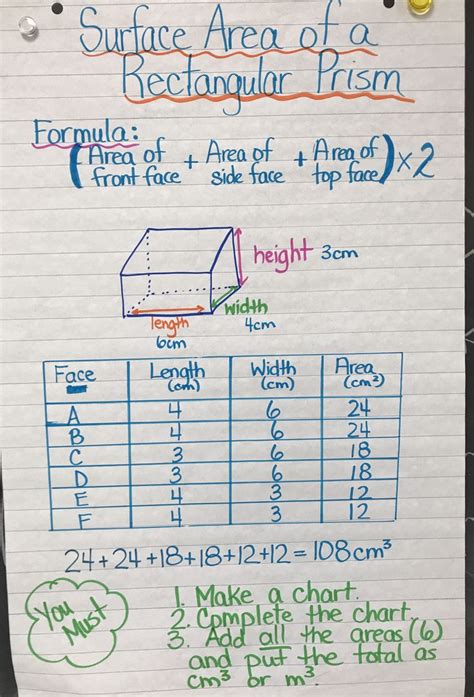 Surface Area of a
Rectangular Prism
Formula:
(Area of front face + Area of side face + Area of top face) x2
height 3cm
width
4cm
length
6cm
Face Length (cm) Width (cm) Area (cm²)
A 4 6 24
B 4 6 24
C 3 6 18
D 3 6 18
E 4 3 12
F 4 3 12
24+24+18+18+12+12=108cm³
You Must
1. Make a chart.
2. Complete the chart.
3. Add all the areas (6)
and put the total as
cm³ or m³.